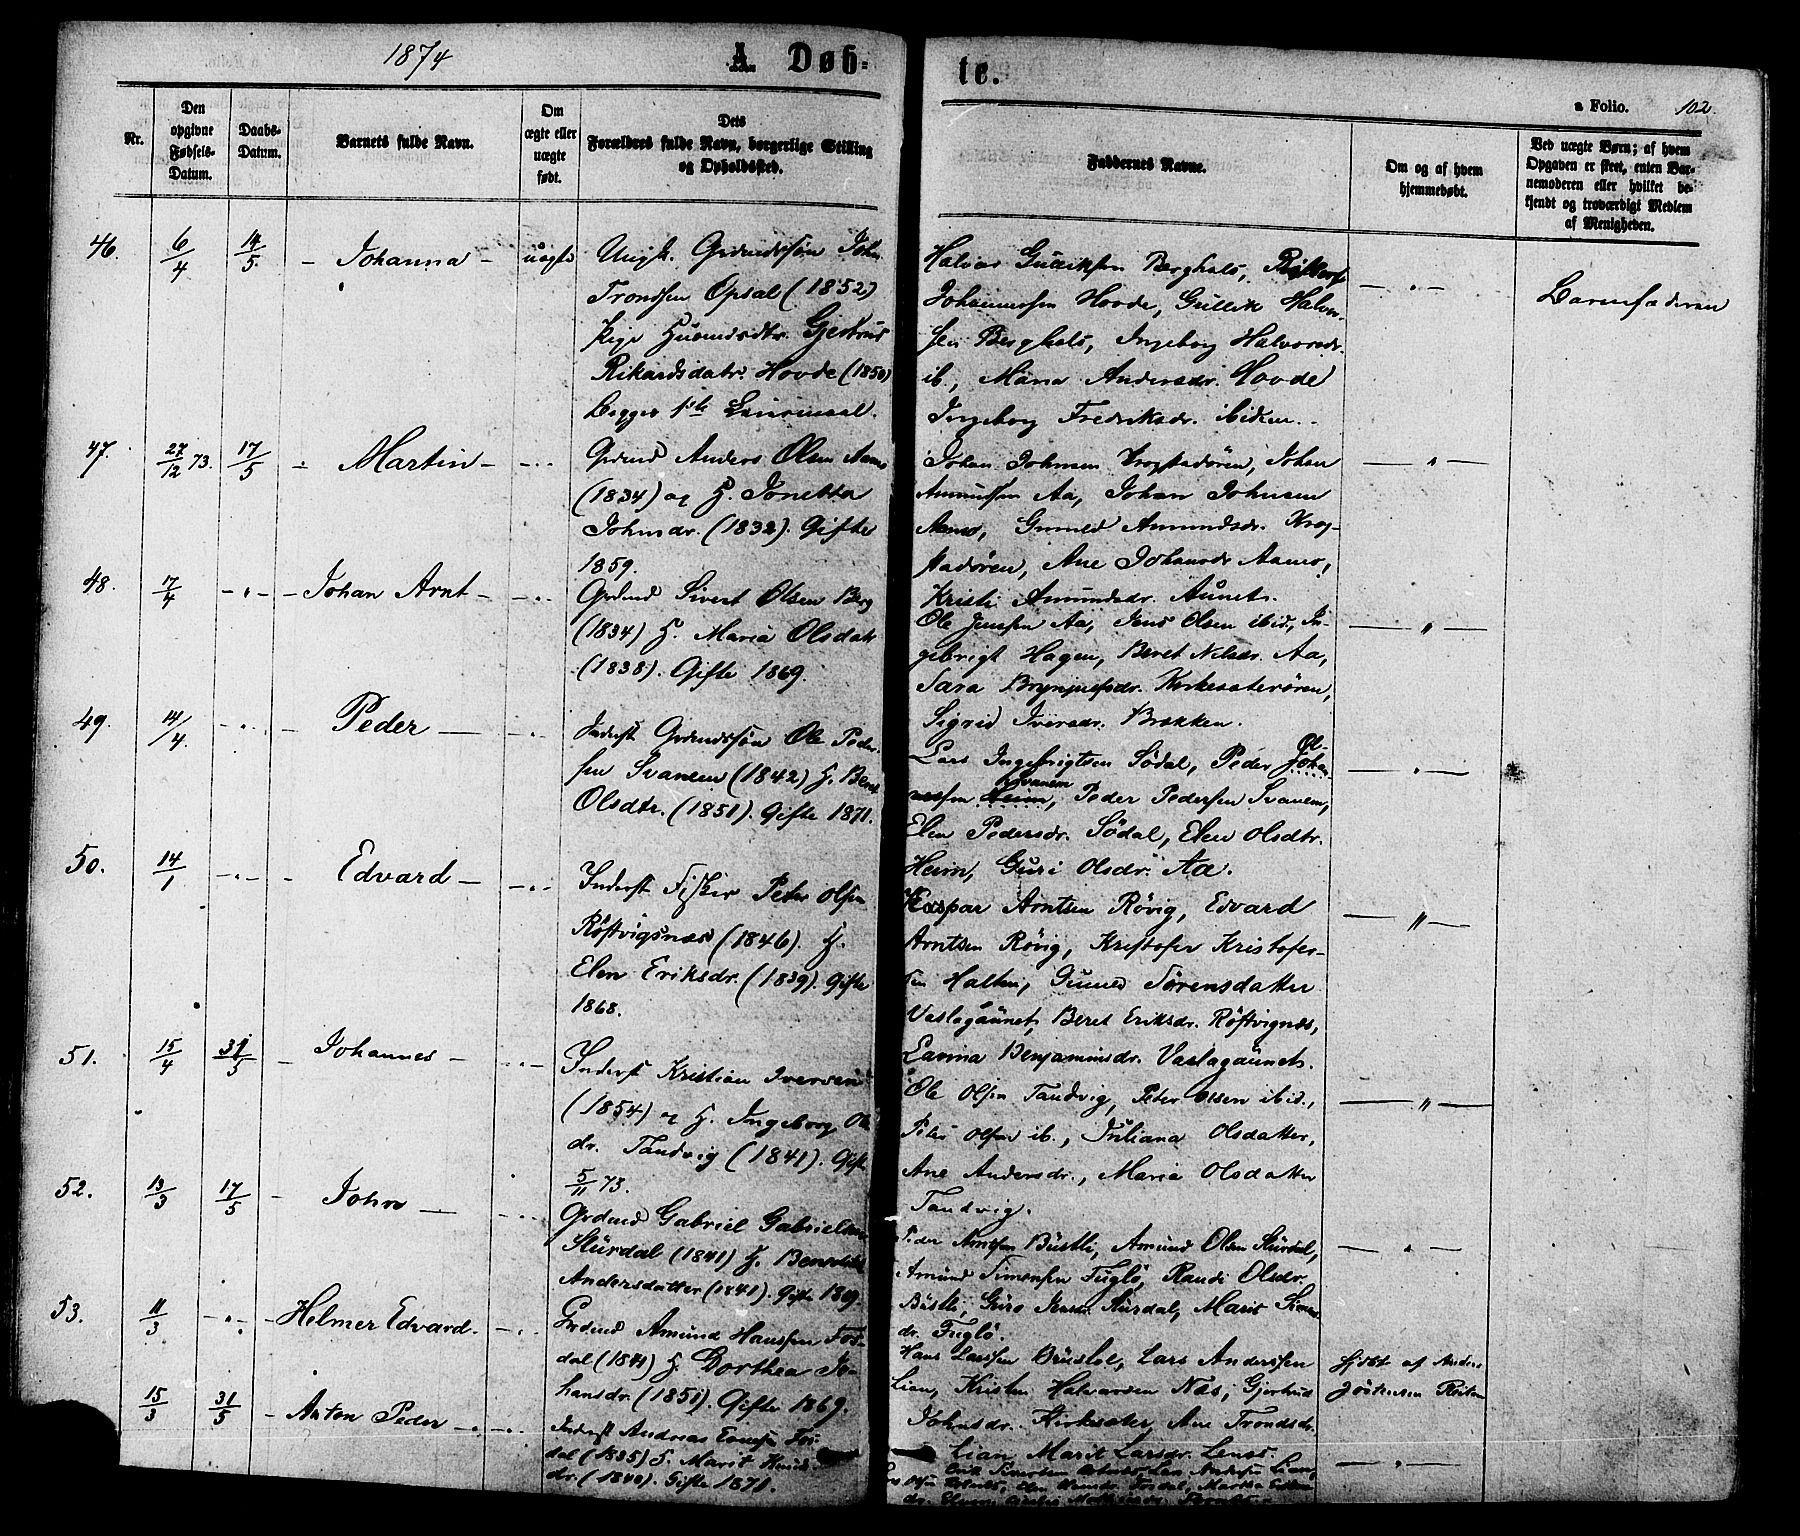 1874
A. Døb-
te.
a Folio. 102.
Nr.
Den opgivne Fødsels-Datum.
Daabs-Datum.
Barnets fulde Navn.
Om ægte eller uægte født.
Dets Forældres fulde Navn, borgerlige Stilling og Opholdssted.
Faddernes Navne.
Om og af hvem hjemmedøbt.
Ved uægte Børn; af hvem Opgaven er skeet, enten Barnemoderen eller hvilket bekjendt og troværdigt Medlem af Menigheden.
46. 6/4 14/5 - Johanna - uægte
Ungk. Grdmdssøn John
Trondsen Opsal (1852)
Pige Husmdsdtr. Gjertrud
Rikardsdatr. Hovde (1850)
Begges 1ste Leiermaal.
Halvor Gulliksen Berghals,
Johannessen Hovde, Gullik Halvor-
sen Berghals, Ingeborg Halvorsdr.
ib., Maria Andersdr. Hovde
Ingeborg Fredriksdr. ibidem.
Barnefaderen
47. 27/12 73. 17/5 - Martin -
Grdmd Anders Olsen Aamo
(1834) og H. Jonetta
Johnsdr. (1832). Gifte
1859.
Johan Johnsen Krogstadøren, Johan
Amundsen Aa, Johan Johnsen
Aamo, Gunild Amundsdr. Krog-
stadøren, Ane Johansdr Aamo,
Kristi Amundsdr. Aunet.
48. 17/4 - " - Johan Arnt -
Grdmd Sivert Olsen Berg
(1834) H. Maria Olsdatr
(1838). Gifte 1869.
Ole Jenssen Aa, Jens Olsen ibid., In-
gebrigt Hagen, Beret Nilsdr. Aa,
Sara Brynjulfsdr. Kirkesæterøren,
Sigrid Iversdr. Brækken.
49. 14/4 - " - Peder -
Inderst Grdmdssøn Ole Peder-
sen Svanem (1842) H. Beret
Olsdtr. (1851). Gifte 1871.
Lars Ingebrigtsen Södal, Peder Johan-
nessen Heim, Peder Pedersen Svanem,
Ol-
Svanem
Elen Pedersdr. Södal, Elen Olsdtr.
Heim, Guri Olsdr. Aa.
50. 14/1 - " - Edvard -
Inderst Fisker Peter Olsen
Röstvigsnæs (1846). H.
Elen Eriksdr. (1839). Gifte
1868.
Kaspar Arntsen Rövig, Edvard
Arntsen Rövig, Kristofer Kristofer-
sen Halten, Gunild Sörensdatter
Vaslagaunet, Beret Eriksdr. Röstvignæs,
Benjaminsdr. Vaslagaunet.
51. 15/4 31/5 - Johannes -
Inderst Kristian Iversen
(1854) og H. Ingeborg Ols-
dr. Tandvig (1841). Gifte
5/11 73.
Ole Olsen Tandvig, Peter Olsen ibid.,
Peter Olsen ib., Juliana Olsdatter,
Ane Andersdr., Maria Olsdatter
Tandvig.
52. 13/3 17/5 - John -
Grdmd Gabriel Gabrielsen
Sturdal (1841) H.
Andersdatter (1841). Gifte 1869.
Peder Arntsen Bustli, Amund Olsen Sturdal,
Amund Simonsen Fuglö, Randi Olsdr.
Bustli, Guro Sturdal, Marit Simons-
dr. Fuglö.
53. 11/3 - " - Helmer Edvard -
Grdmd Amund Hanssen Fos-
dal (1841) H Dorthea Jo-
hansdr. (1851). Gifte 1869.
Hans Larssen, Lars Anderssen
Lian, Kristen Halvorsen Næs, Gjertrud
Johnsdr. Kirksæter, Ane Trondsdr.
Lian, Marit Larsdr.
hjdbt af Anders
15/3 31/5 - Anton Peder -
Inderst Andreas Fos-
dal (1835) H. Marit
dr. (1840). Gifte 1871.